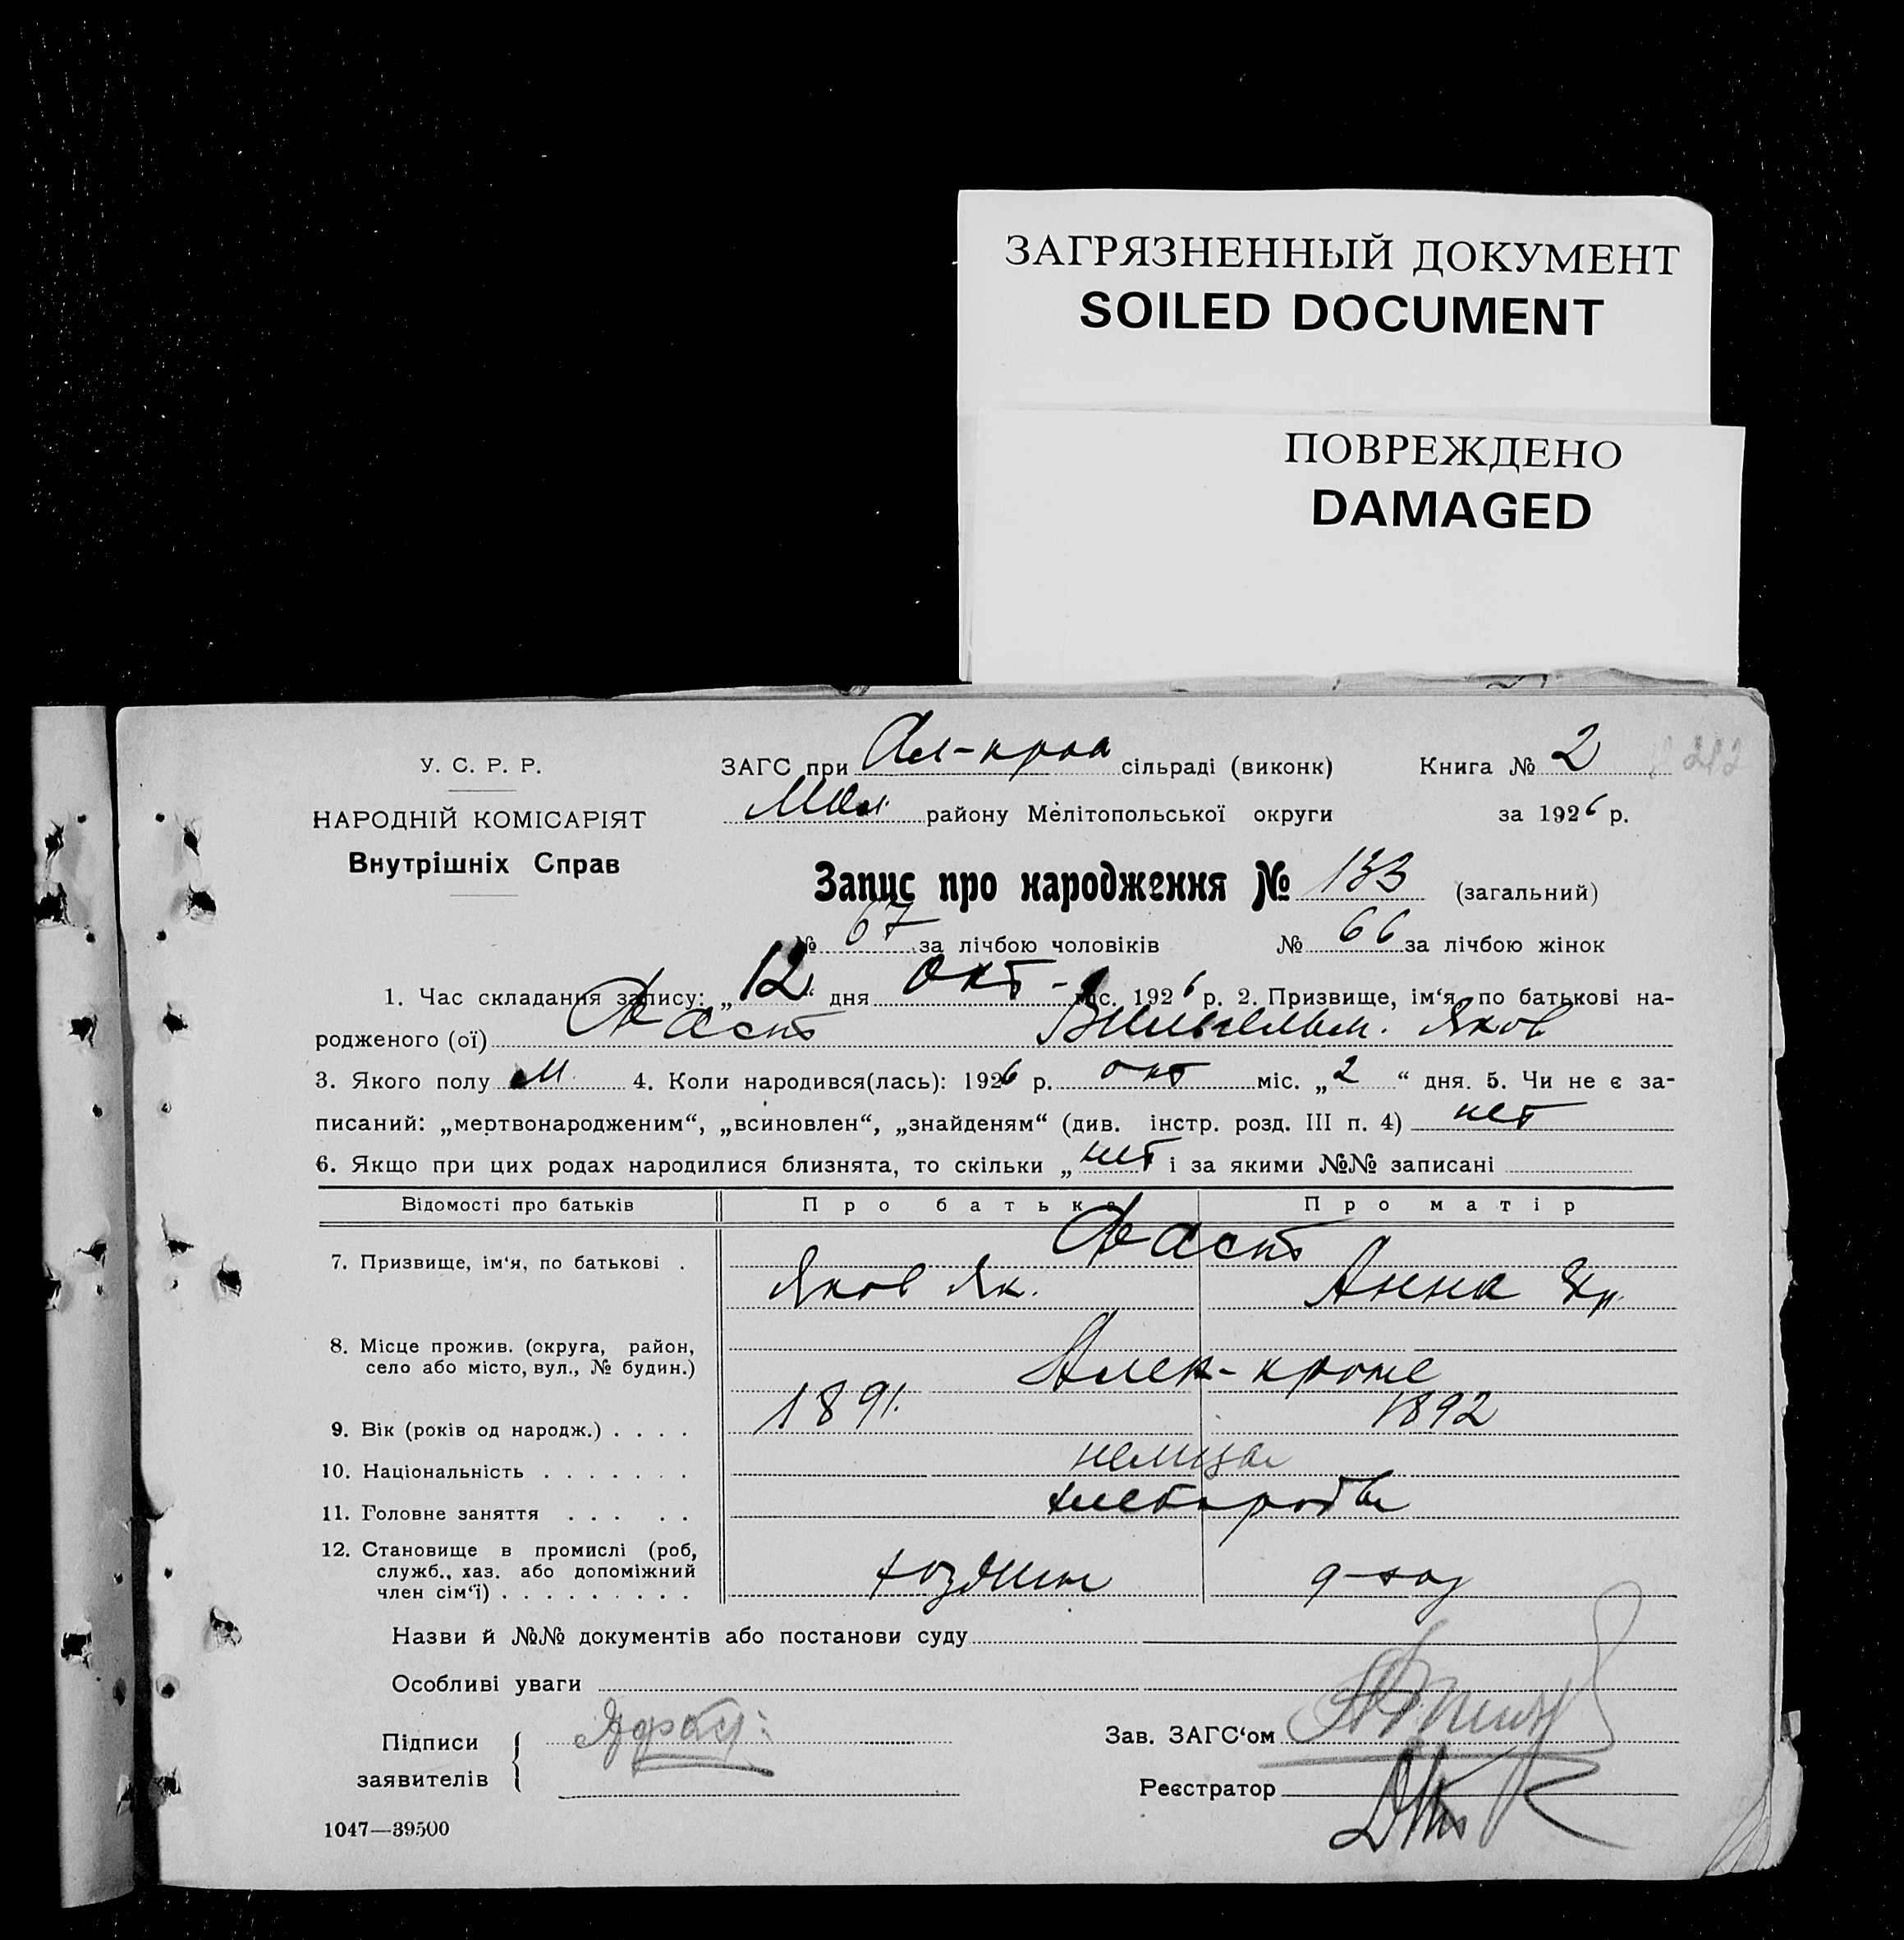 ЗАГРЯЗНЕННЫЙ ДОКУМЕНТ
SOILED DOCUMENT
ПОВРЕЖДЕНО
DAMAGED
У. С. Р. Р.
НАРОДНІЙ КОМІСАРІЯТ
Внутрішніх Справ
ЗАГС при Ал-крон сільраді (виконк) Книга № 2
Мол. району Мелітопольської округи за 1926 р.
Запис про народження № 133 (загальний)
№ 67 за лічбою чоловіків № 66 за лічбою жінок
1. Час складання запису: „ 12 “ дня окт - міс. 1926 р. 2. Призвище, ім‘я, по батькові на-
родженого (ої) Фаст Вильгельм. Яков
3. Якого полу М. 4. Коли народився(лась): 1926 р. окт міс. „ 2 “ дня. 5. Чи не є за-
писаний: „мертвонародженим“, „всиновлен“, „знайденям“ (див. інстр. розд. III п. 4) нет
6. Якщо при цих родах народилися близнята, то скільки „ нет і за якими №№ записані
Відомості про батьків Про батька Про матір
7. Призвище, ім‘я, по батькові . Фаст
Яков Як. Анна
8. Місце прожив. (округа, район,
село або місто, вул., № будин.) Алек-кроне
9. Вік (років од народж.) . . . . 1891. 1892
10. Національність . . . . . . . немцы
11. Головне заняття . . . . .
12. Становище в промислі (роб,
служб., хаз. або допоміжний
член сім‘ї) . . . . . . . . .
Назви й №№ документів або постанови суду
Особливі уваги
Підписи
заявителів
Зав. ЗАГС‘ом
Реєстратор
1047—39500